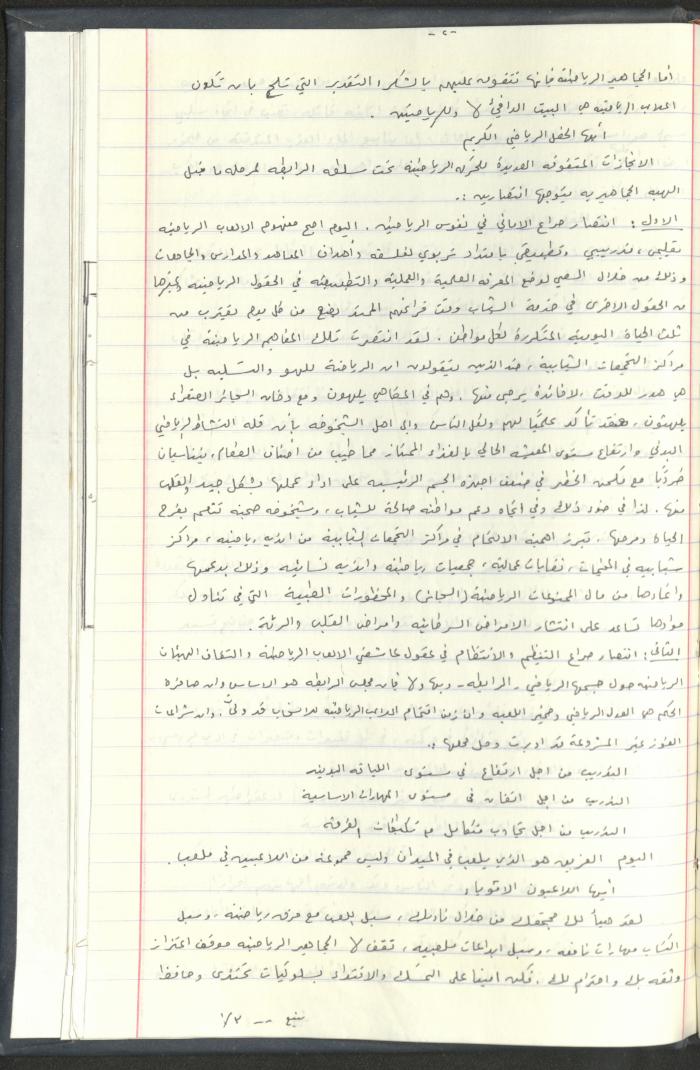 -٢-
أما الجماهير الرياضية فإنها تتقدم عليهم بالشكر والتقدير التي تلح بان تكون
الملاعب الرياضية هي البيت الدافئ لا وللرياضيين .
أيها الحفل الرياضي الكريم
الانجازات المتفوقة العديدة للحركة الرياضية تحت سلطة الرابطة لمرحلة ما قبل
الهبه الجماهيريه يتوجها انتصارين :.
الاول : انتصار صراع الاماني في نفوس الرياضيين . اليوم اصبح مفهوم الالعاب الرياضيه
تعليمي ، تدريبي وتطبيقي بامتداد تربوي لفلسفة وأهداف المعاهد والمدارس والجامعات
وذلك من خلال السعي لوضع المعرفه العلمية والعملية والتطبيقيه في الحقول الرياضيه وغيرها
من الحقول الاخرى في خدمة الشباب وقت فراغهم الممتد يضيع من كل يوم يقترب من
ثلث الحياة اليوميه المتكررة لكل مواطن . لقد انتصرت تلك المفاهيم الرياضية في
مراكز التجمعات الشبابية ، ضد الذين يقولون ان الرياضة للهو والتسليه بل
هي هدر للوقت ، لا فائدة يرجى منها . وهم في المقاهي يلهون ومع دخان السجائر الصفراء
يلهثون ، فقد تأكد علميًا لهم ولكل الناس والى اهل الشيخوخه بأن قلة النشاط الرياضي
البدني وارتفاع مستوى المعيشه الحالي بالغذاء الممتاز مما طيب من أصناف الطعام ، يتناسبان
طرديًا مع مكمن الخطر في ضعف اجهزة الجسم الرئيسيه على اداء عملها بشكل جيد القلب
منها . لذا في ضوء ذلك وفي اتجاه دعم مواطنه صالحة للشباب ، وشيخوخه صحية تنعم بفرح
الحياة ومرحها . تبرز اهمية الالتحام في مراكز التجمعات الشبابية من انديه رياضيه ، مراكز
شبابيه في المخيمات ، نقابات عمالية ، جمعيات رياضية وانديه نسائيه وذلك بدعمها
وابعادها من مال الممنوعات الرياضية (السجائر) والمحظورات الطبية التي في تناول
موادها تساعد على انتشار الامراض السرطانيه وامراض القلب والرئة .
الثاني : انتصار صراع التنظيم والانتظام في عقول عاشقي الالعاب الرياضية والتفاف الهيئات
الرياضيه حول جسمها الرياضي - الرابطة - وبها ولا فان مجلس الرابطة هو الاساس وان صافرة
الحكم هي العدل الرياضي وضمير اللعبه وان زمن اقتحام الملاعب الرياضيه للانسحاب قد ولّى . وان شراعات
الفوز غير المشروعة قد ادبرت وحل محلها :.
التدريب من اجل ارتفاع في مستوى اللياقه البدنيه
التدريب من اجل اتقان في مستوى المهارات الاساسية
التدريب من اجل تجاوب متكامل مع تكتيكات الفرقة
اليوم الفريق هو الذي يلعب في الميدان وليس مجموعة من اللاعبين في ملعب .
أيها اللاعبون الاقوياء
لقد هيأ لك مجتمعك من خلال ناديك ، سبل اللعب مع فرق رياضية ، وسبل
اكتساب مهارات نافعه ، وسبل ابداعات ملعبيه ، تقف لا الجماهير الرياضيه موقف اعتزاز
وثقه بك واحترام لك . فكن امينا على التمسك والاقتداء بسلوكيات تحتذى وحافظا
يتبع -- ١/٣